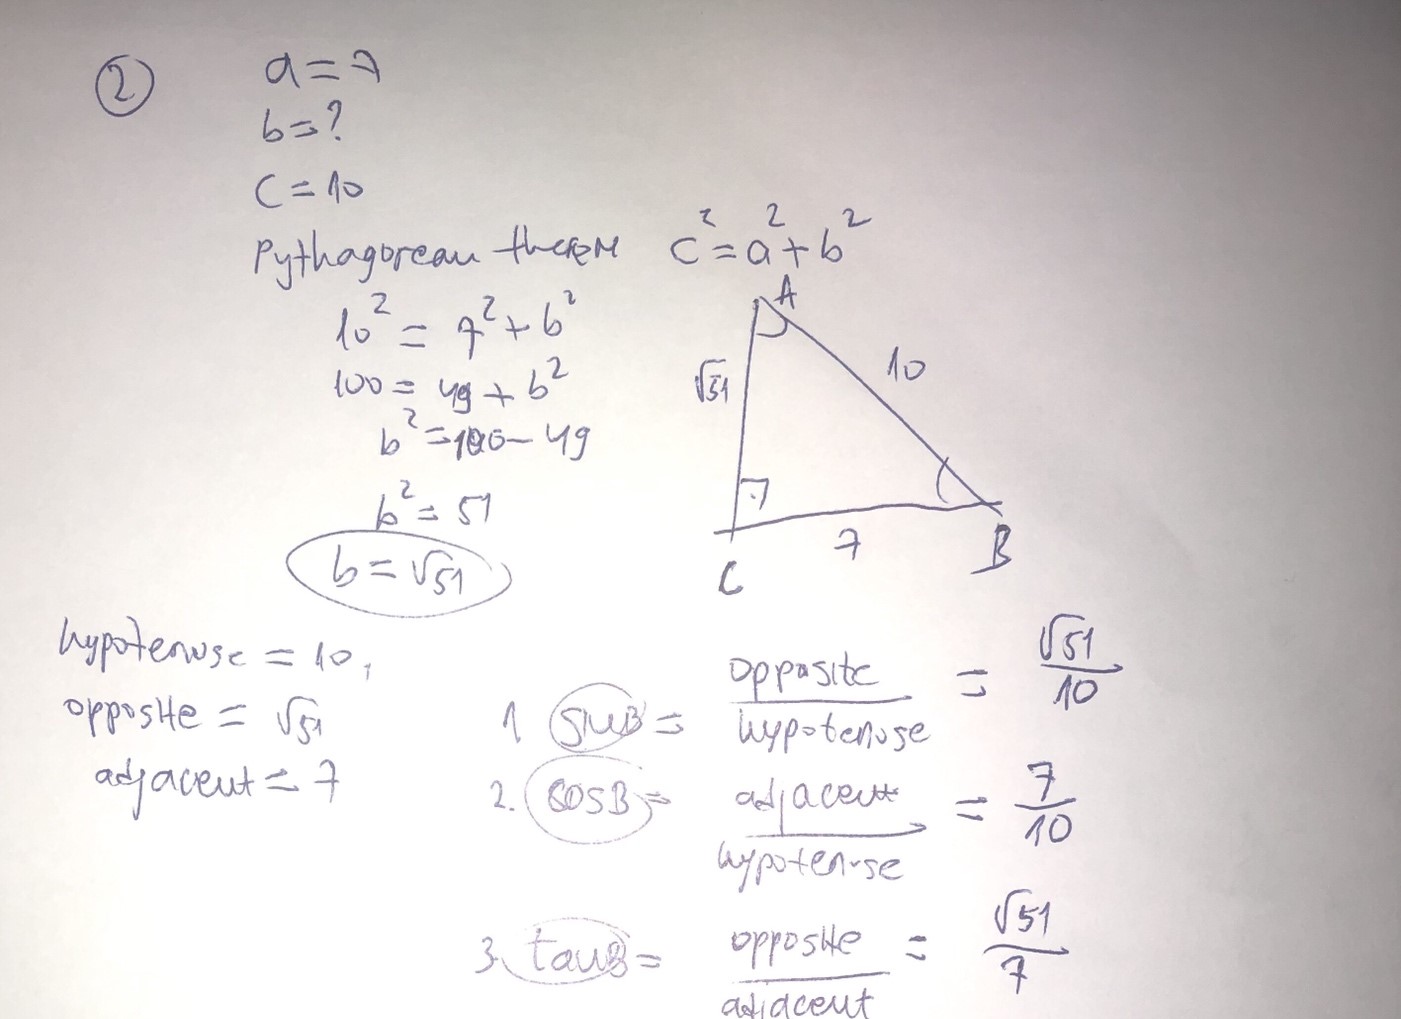 2
a = 7
b = ?
c = 10
Pythagorean theorem c² = a² + b²
10² = 7² + b²
100 = 49 + b²
b² = 100 - 49
b² = 51
b = √51
A
√51
10
7
C
B
hypotenuse = 10,
opposite = √51
adjacent = 7
1. sinB = opposite / hypotenuse = √51 / 10
2. cosB = adjacent / hypotenuse = 7 / 10
3. tanB = opposite / adjacent = √51 / 7